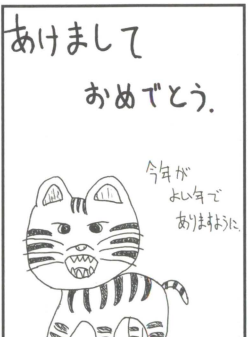 あけまして
おめでとう.
今年が
よい年で
ありますように.